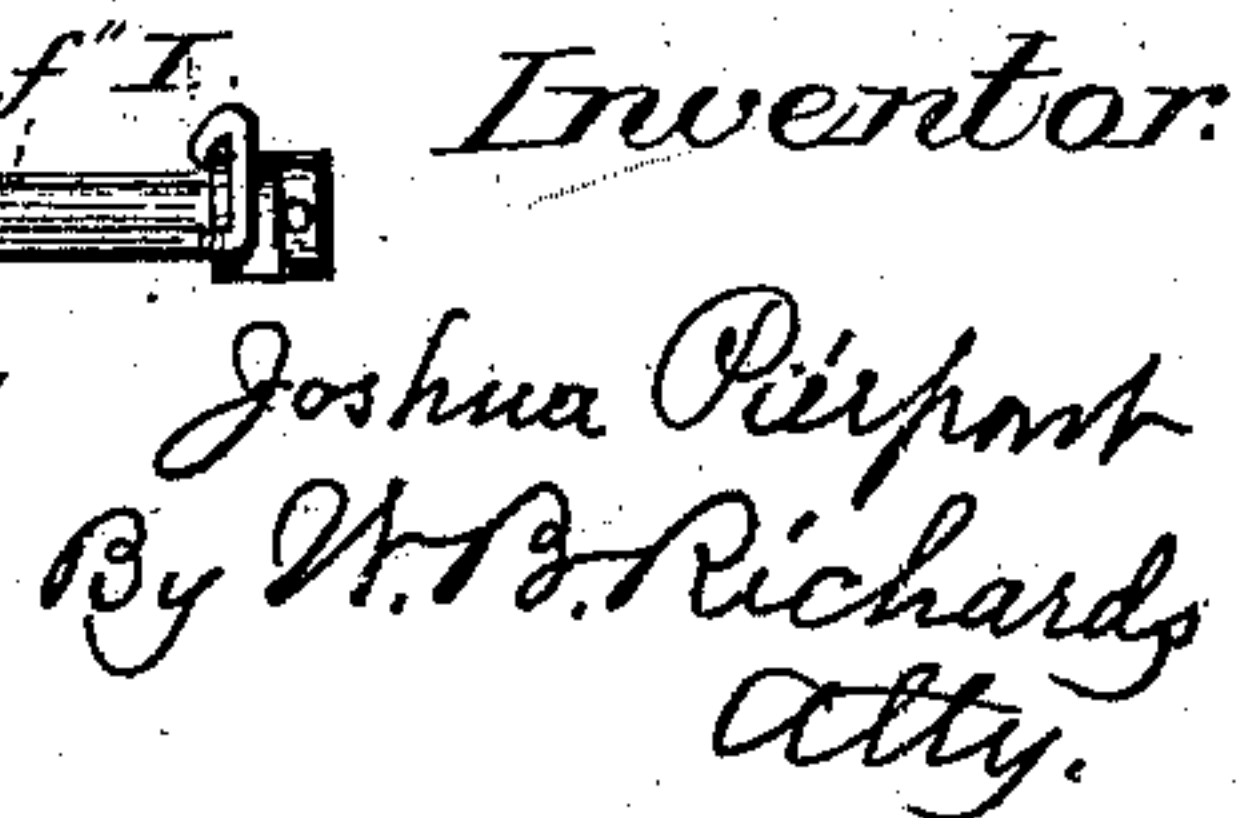 f" I.
Inventor.
Joshua Pierpont
By W. B. Richards
Atty.